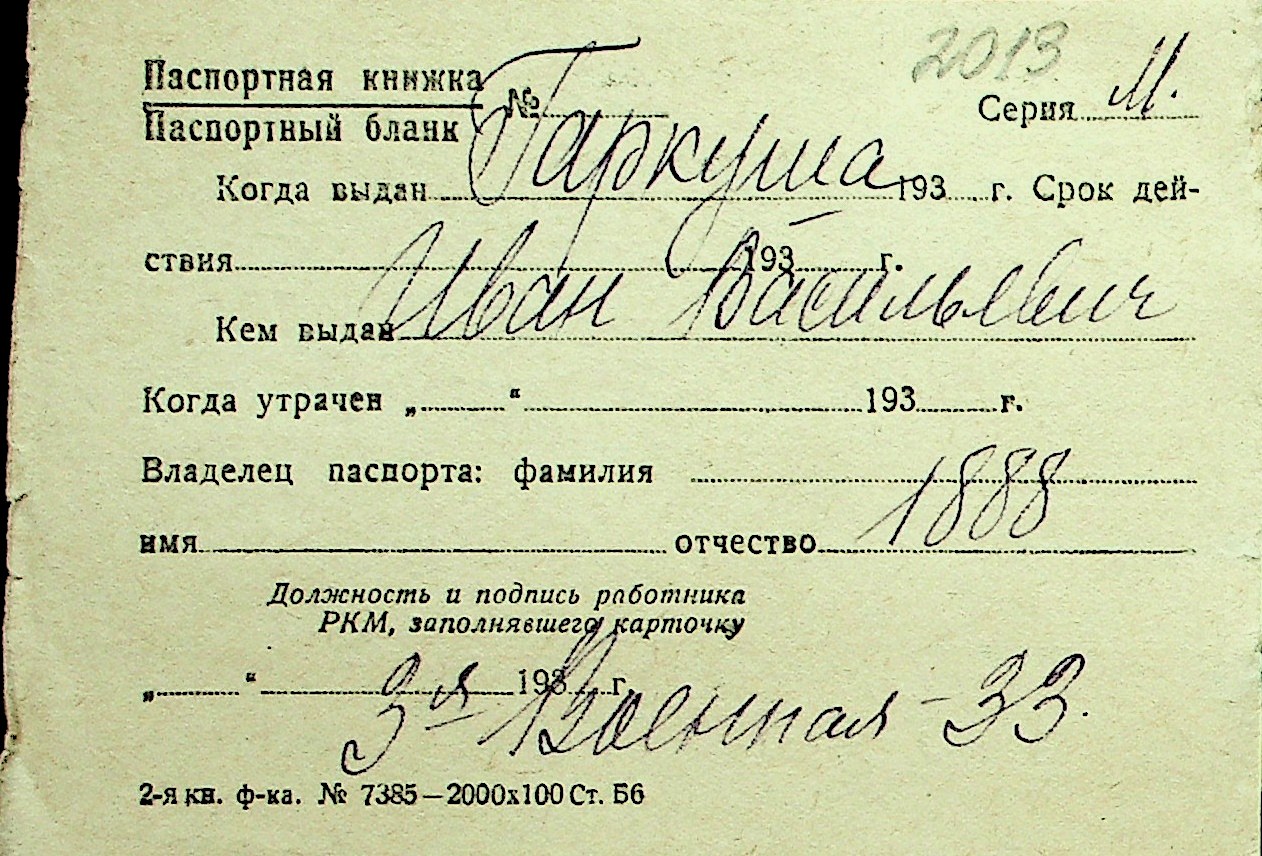 2013
Паспортная книжка
Паспортный бланк № Серия М.
Гаркуша
Когда выдан 193 г. Срок дей-
ствия 193 г.
Иван Васильевич
Кем выдан
Когда утрачен „ “ 193 г.
Владелец паспорта: фамилия
1888
имя отчество
Должность и подпись работника
РКМ, заполнявшего карточку
„ “ 193 г.
3я Военная - 33.
2-я кн. ф-ка. № 7385—2000х100 Ст. Б6